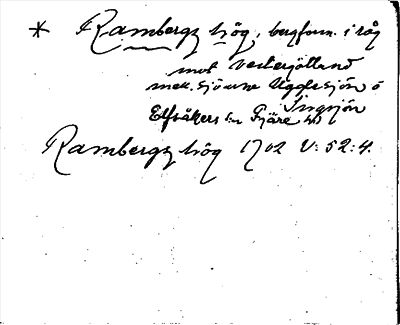 * Rambergs hög, bergform. i råg
mot Vestergötland
mell. sjöarne Ugglesjön o
Singsjön
Elfsåkers sn Fjäre hd
Rambergs hög 1702 V: 52: 4.